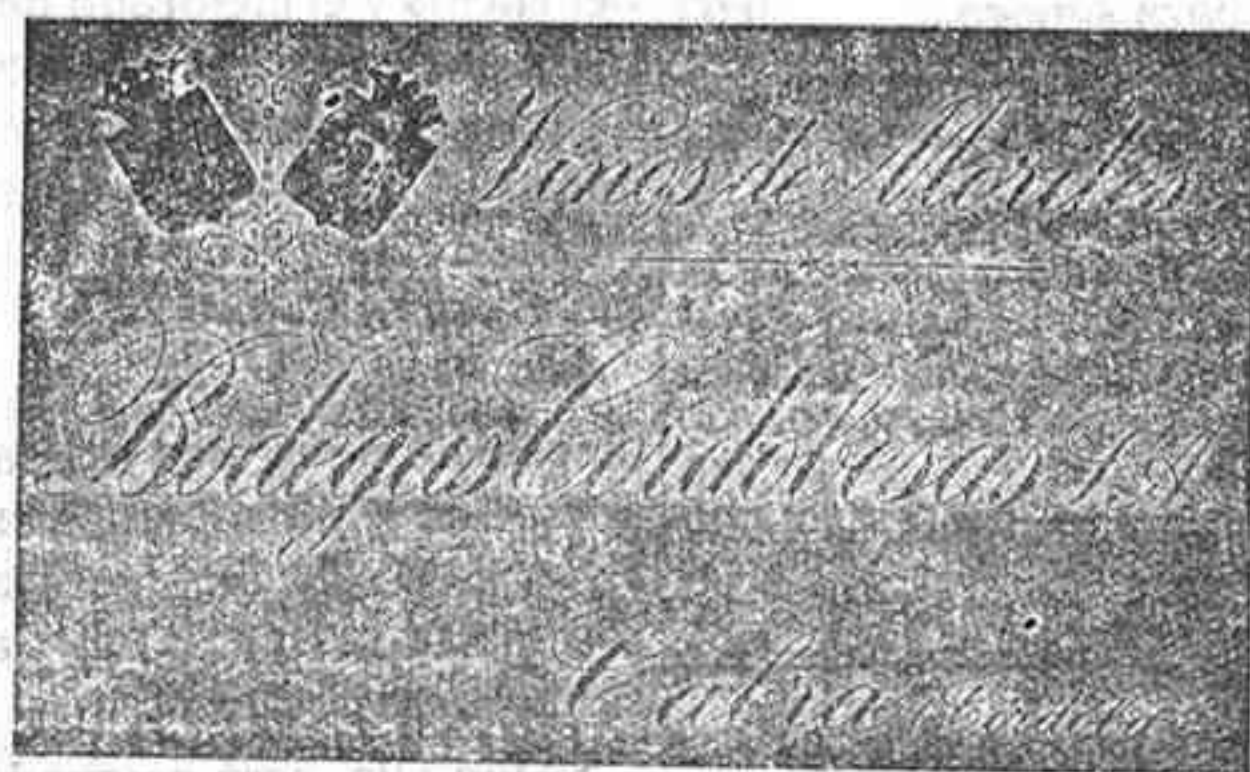 Vinos de Moriles
Bodegas Cordobesas S. A.
Cabra (Córdoba)